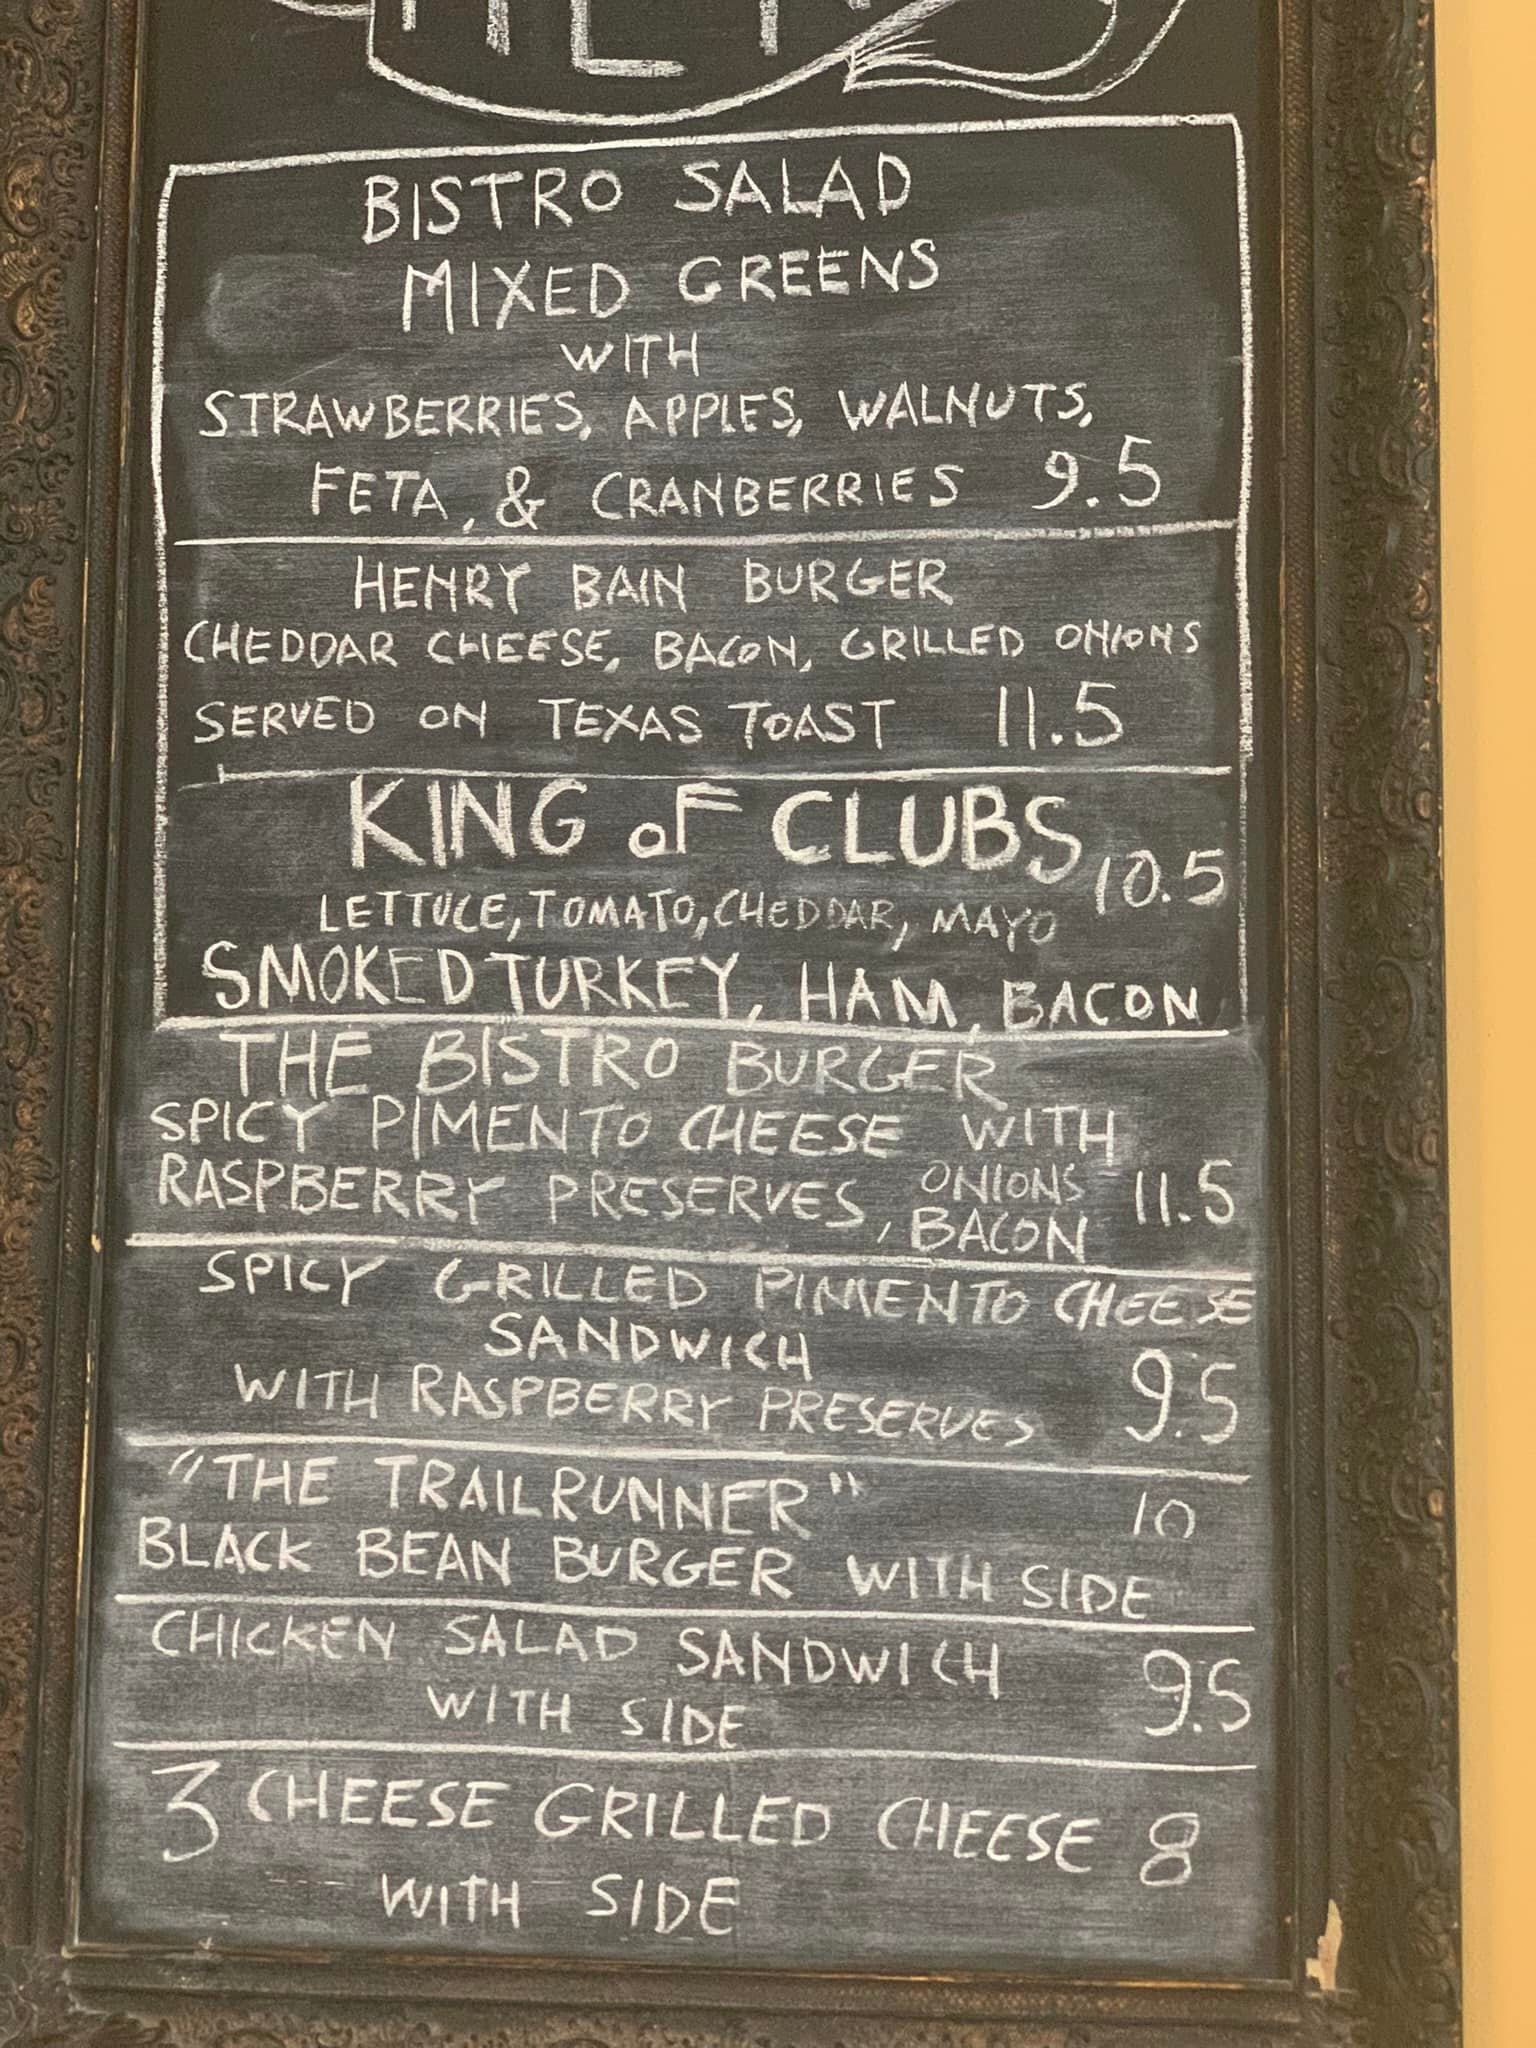 BISTRO SALAD
MIXED GREENS
WITH
STRAWBERRIES, APPLES, WALNUTS,
FETA, & CRANBERRIES 9.5
HENRY BAIN BURGER
CHEDDAR CHEESE, BACON, GRILLED ONIONS
SERVED ON TEXAS TOAST 11.5
KING OF CLUBS
10.5
LETTUCE, TOMATO, CHEDDAR, MAYO
SMOKED TURKEY, HAM, BACON
THE BISTRO BURGER
SPICY PIMENTO CHEESE WITH
RASPBERRY PRESERVES, ONIONS 11.5
BACON
SPICY GRILLED PIMENTO CHEESE
SANDWICH
WITH RASPBERRY PRESERVES 9.5
"THE TRAILRUNNER" 10
BLACK BEAN BURGER WITH SIDE
CHICKEN SALAD SANDWICH 9.5
WITH SIDE
3 CHEESE GRILLED CHEESE 8
WITH SIDE